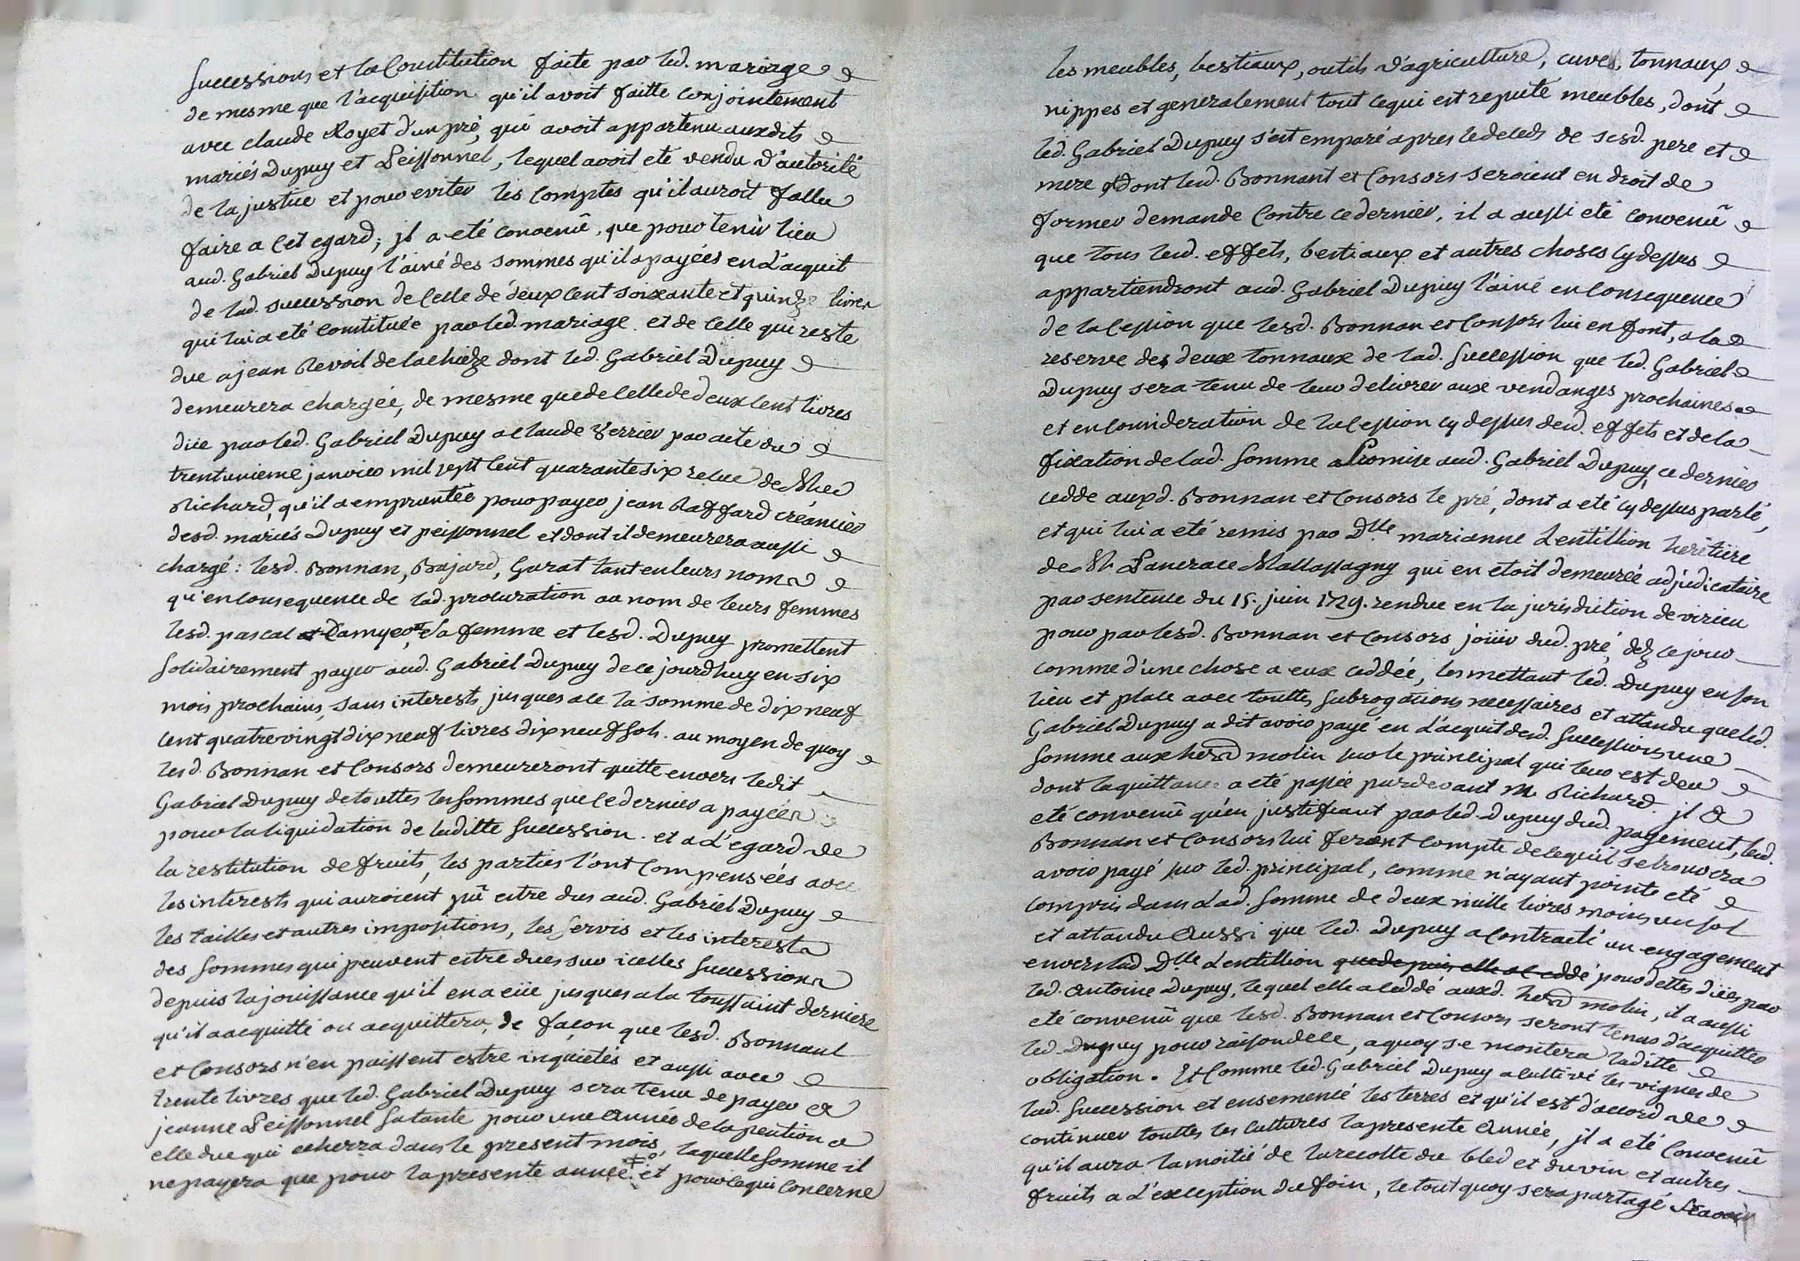 successions et la Constitution faite par led. mariage
de mesme que l'acquisition qu'il avoit faitte conjointement
avec claude Royet d'un pré, qui avoit appartenu auxdits
mariés Dupuy et Peissonnel, lequel avoit eté vendu d'autorité
de la justice et pour eviter les Comptes qu'il auroit fallu
faire a Cet egard; jl a eté convenû, que pour tenir lieu
aud. Gabriel Dupuy l'ainé des sommes qu'il a payées en l'acquit
de lad. succession de Celle de deux cent soixante et quinze livres
qui lui a eté Constituée par led. mariage. et de Celle qui reste
due a jean Revoil de la chieze dont led. Gabriel Dupuy
demeurera chargée, de mesme que de Celle de deux Cent livres
düe par led. Gabriel Dupuy a Claude Verrier par acte du
trentunieme janvier mil sept Cent quarante six recue de Me
Richard, qu'il a empruntée pour payer jean Raffard créancier
desd. mariés Dupuy et peissonnel et dont il demeurera aussi
chargé: lesd. Bonnan, Bajard, Garat tant en leurs noms
qu'en Consequence de lad. procuration au nom de leurs femmes
lesd. pascal et sa femme et lesd. Dupuy promettent
solidairement payer aud. Gabriel Dupuy de ce jourdhuy en six
mois prochains, sans interests jusques a Ce la somme de dix neuf
Cent quatrevingt dix neuf livres dix neuf sols. au moyen de quoy
lesd. Bonnan et Consors demeureront quitte envers ledit
Gabriel Dupuy de touttes les sommes que ce dernier a payées
pour la liquidation de laditte succession. et a l'egard de
la restitution de fruits, les parties l'ont Compensées avec
les interests qui auroient pû estre dus aud. Gabriel Dupuy
les tailles et autres impositions, les servis et les interests
des sommes qui peuvent estre dües sur icelles successions
depuis la jouissance qu'il en a eüe jusques a la toussaint derniere
qu'il a acquitté ou acquittera, de façon que lesd. Bonnant
et Consors n'en puissent estre inquiétés et aussi avec
trente livres que led. Gabriel Dupuy sera tenu de payer a
jeanne Peissonnel sa tante pour une année de la pention a
elle due qui echerra dans le present mois, laquelle somme il
ne payera que pour la presente année et pour ce qui Concerne
les meubles, bestiaux, outils d'agriculture, cuves, tonnaux,
nippes et generalement tout ce qui est reputé meubles, dont
led. Gabriel Dupuy s'est emparé apres le deceds de sesd. pere et
mere et dont lesd. Bonnant et Consors seroient en droit de
former demande Contre ce dernier, il a aussi eté convenû
que tous lesd. effets, bestiaux et autres choses cy dessus
appartiendront aud. Gabriel Dupuy l'ainé en Consequence
de la Cession que lesd. Bonnan et Consors lui en font, a la
reserve des deux tonnaux de lad. succession que led. Gabriel
Dupuy sera tenu de leur delivrer aux vendanges prochaines
et en Consideration de la Cession cy dessus desd. effets et de la
fixation de lad. somme promise aud. Gabriel Dupuy, ce dernier
cedde auxd. Bonnan et Consors le pré, dont a eté cy dessus parlé,
et qui lui a eté remis par Dlle marianne Lentillion heritiere
de Sr. Pancrace Mallassagny qui en etoit demeurée adjudicataire
par sentence du 15. juin 1729. rendue en la jurisdiction de virieu
pour par lesd. Bonnan et Consors joüir dud. pré, dez ce jour
comme d'une chose a eux ceddée, les mettant led. Dupuy en son
lieu et place avec touttes subrogations necessaires et attandu que led.
Gabriel Dupuy a dit avoir payé en l'acquit desd. successions une
somme aux herd molin sur le principal qui leur est deu
dont la quittance a eté passée pardevant Me Richard jl a
eté convenû qu'en justifiant par led. Dupuy dud. payement, lesd.
Bonnan et Consors lui feront compte de ce qu'il se trouvera
avoir payé sur led. principal, comme n'ayant point eté
compris dans lad. somme de deux mille livres moins un sol
et attandu aussi que led. Dupuy a Contracté un engagement
envers lad. Dlle Lentillion pour dettes dües par
led. Antoine Dupuy, lequel elle a ceddé auxd. herd molin, il a aussi
eté convenû que lesd. Bonnan et Consors seront tenus d'acquitter
led. Dupuy pour raison de ce, a quoy se montera laditte
obligation. Et Comme led. Gabriel Dupuy a Cultivé les vignes de
lad. succession et ensemencé les terres et qu'il est d'accord de
continuer touttes les cultures la presente année, jl a eté Convenû
qu'il aura la moitié de la recolte du bled et du vin et autres
fruits a l'exception du foin, le tout quoy sera partagé scavoir